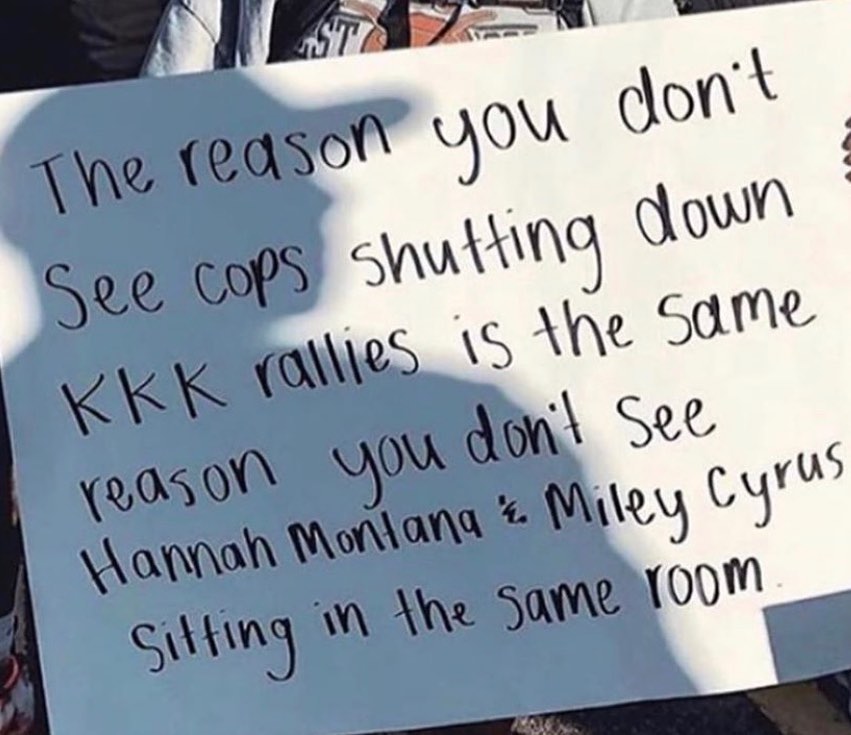 The reason you don't
See cops shutting down
KKK rallies is the same
reason you don't see
Hannah Montana & Miley Cyrus
Sitting in the same room.